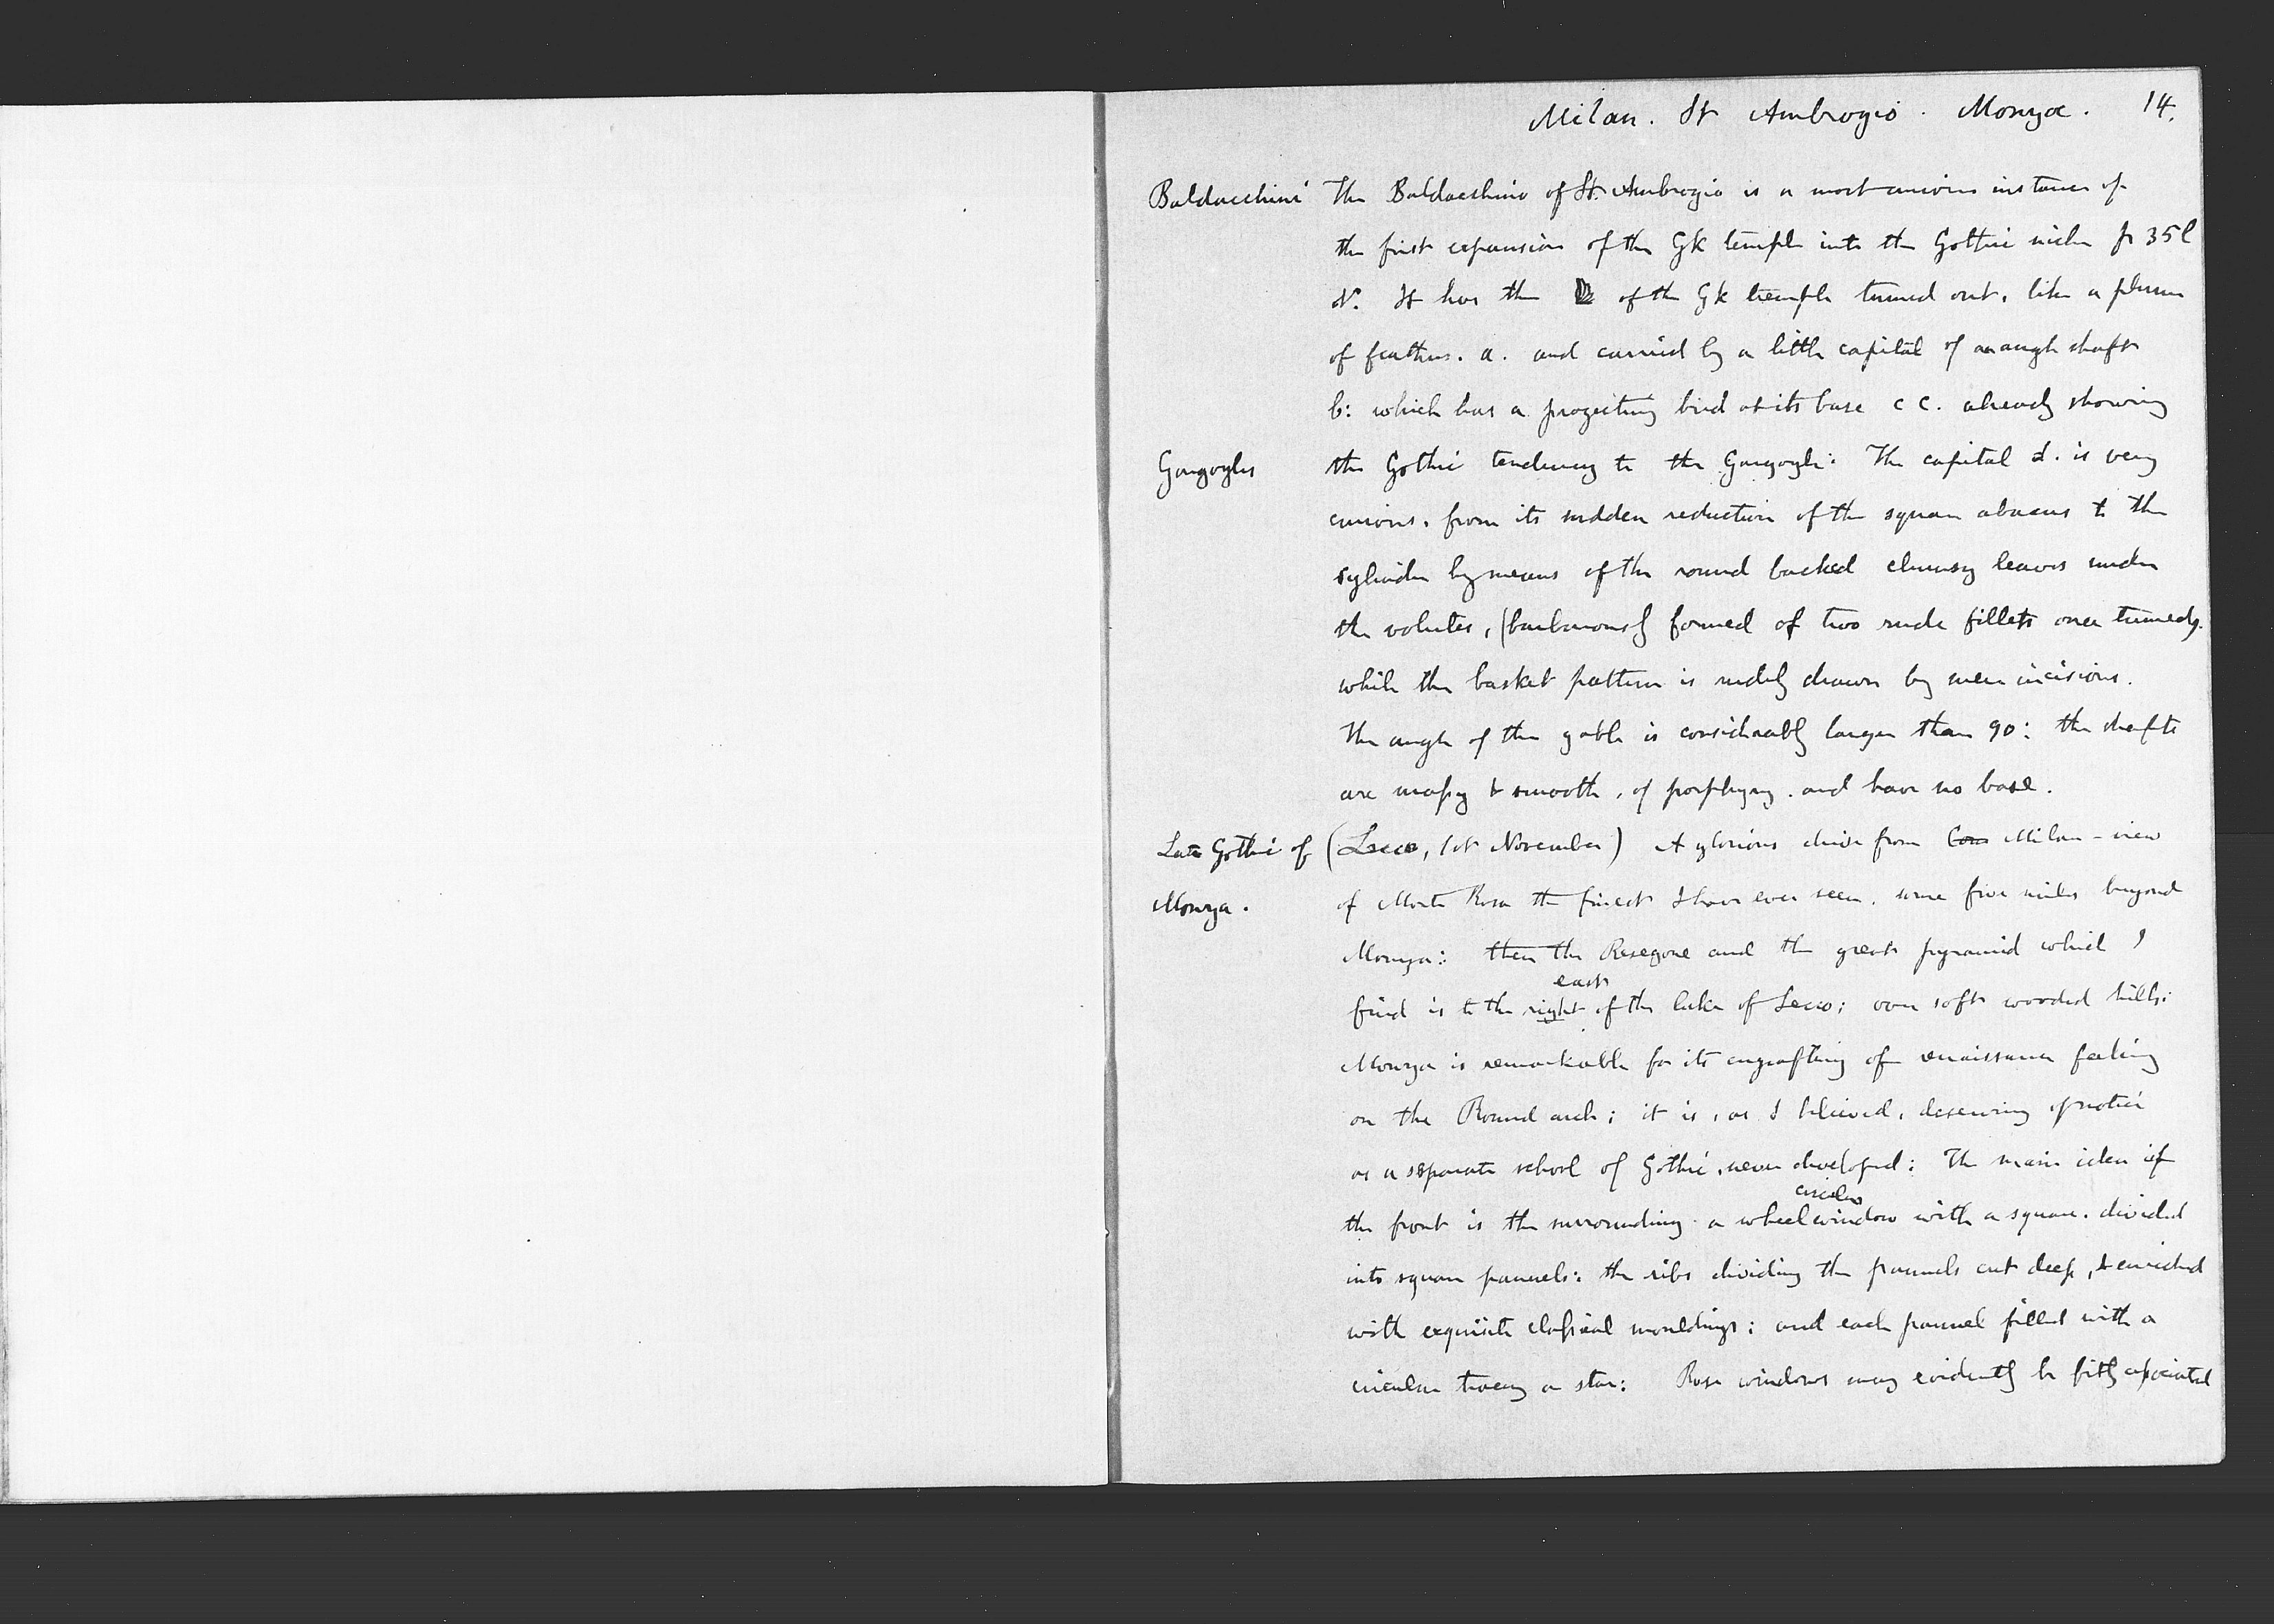 Milan. St Ambrogio. Monza. 14.
Baldacchini The Baldacchino of St. Ambrogio is a most curious instance of
the first expansion of the Gk temple into the Gothic niche p 35 l
N. It has the of the Gk temple turned out, like a plume
of feathers. a. and carried by a little capital of an angle shaft
b: which has a projecting bird at its base c c. already showing
Gargoyles the Gothic tendency to the Gargoyle: The capital d. is very
curious, from its sudden reduction of the square abacus to the
cylinder by means of the round backed clumsy leaves under
the volutes, (barbarously formed of two rude fillets once turned).
while the basket pattern is rudely drawn by mere incisions.
The angle of the gable is considerably larger than 90: the shafts
are massy & smooth, of porphyry. and have no base.
Late Gothic of (Lecco, 1st November) A glorious drive from Com Milan - view
Monza. of Monte Rosa the finest I have ever seen, some five miles beyond
Monza: then the Resegone and the great pyramid which I
east
find is to the right of the lake of Lecco; over soft wooded hills:
Monza is remarkable for its engrafting of renaissance feeling
on the Round arch; it is, as I believed, deserving of notice
as a separate school of Gothic, never developed: The main idea of
circular
the front is the surrounding a wheel window with a square, divided
into square pannels: the ribs dividing the pannels cut deep, & enriched
with exquisite classical mouldings; and each pannel filled with a
circular tracery or star: Rose windows may evidently be fitly associated